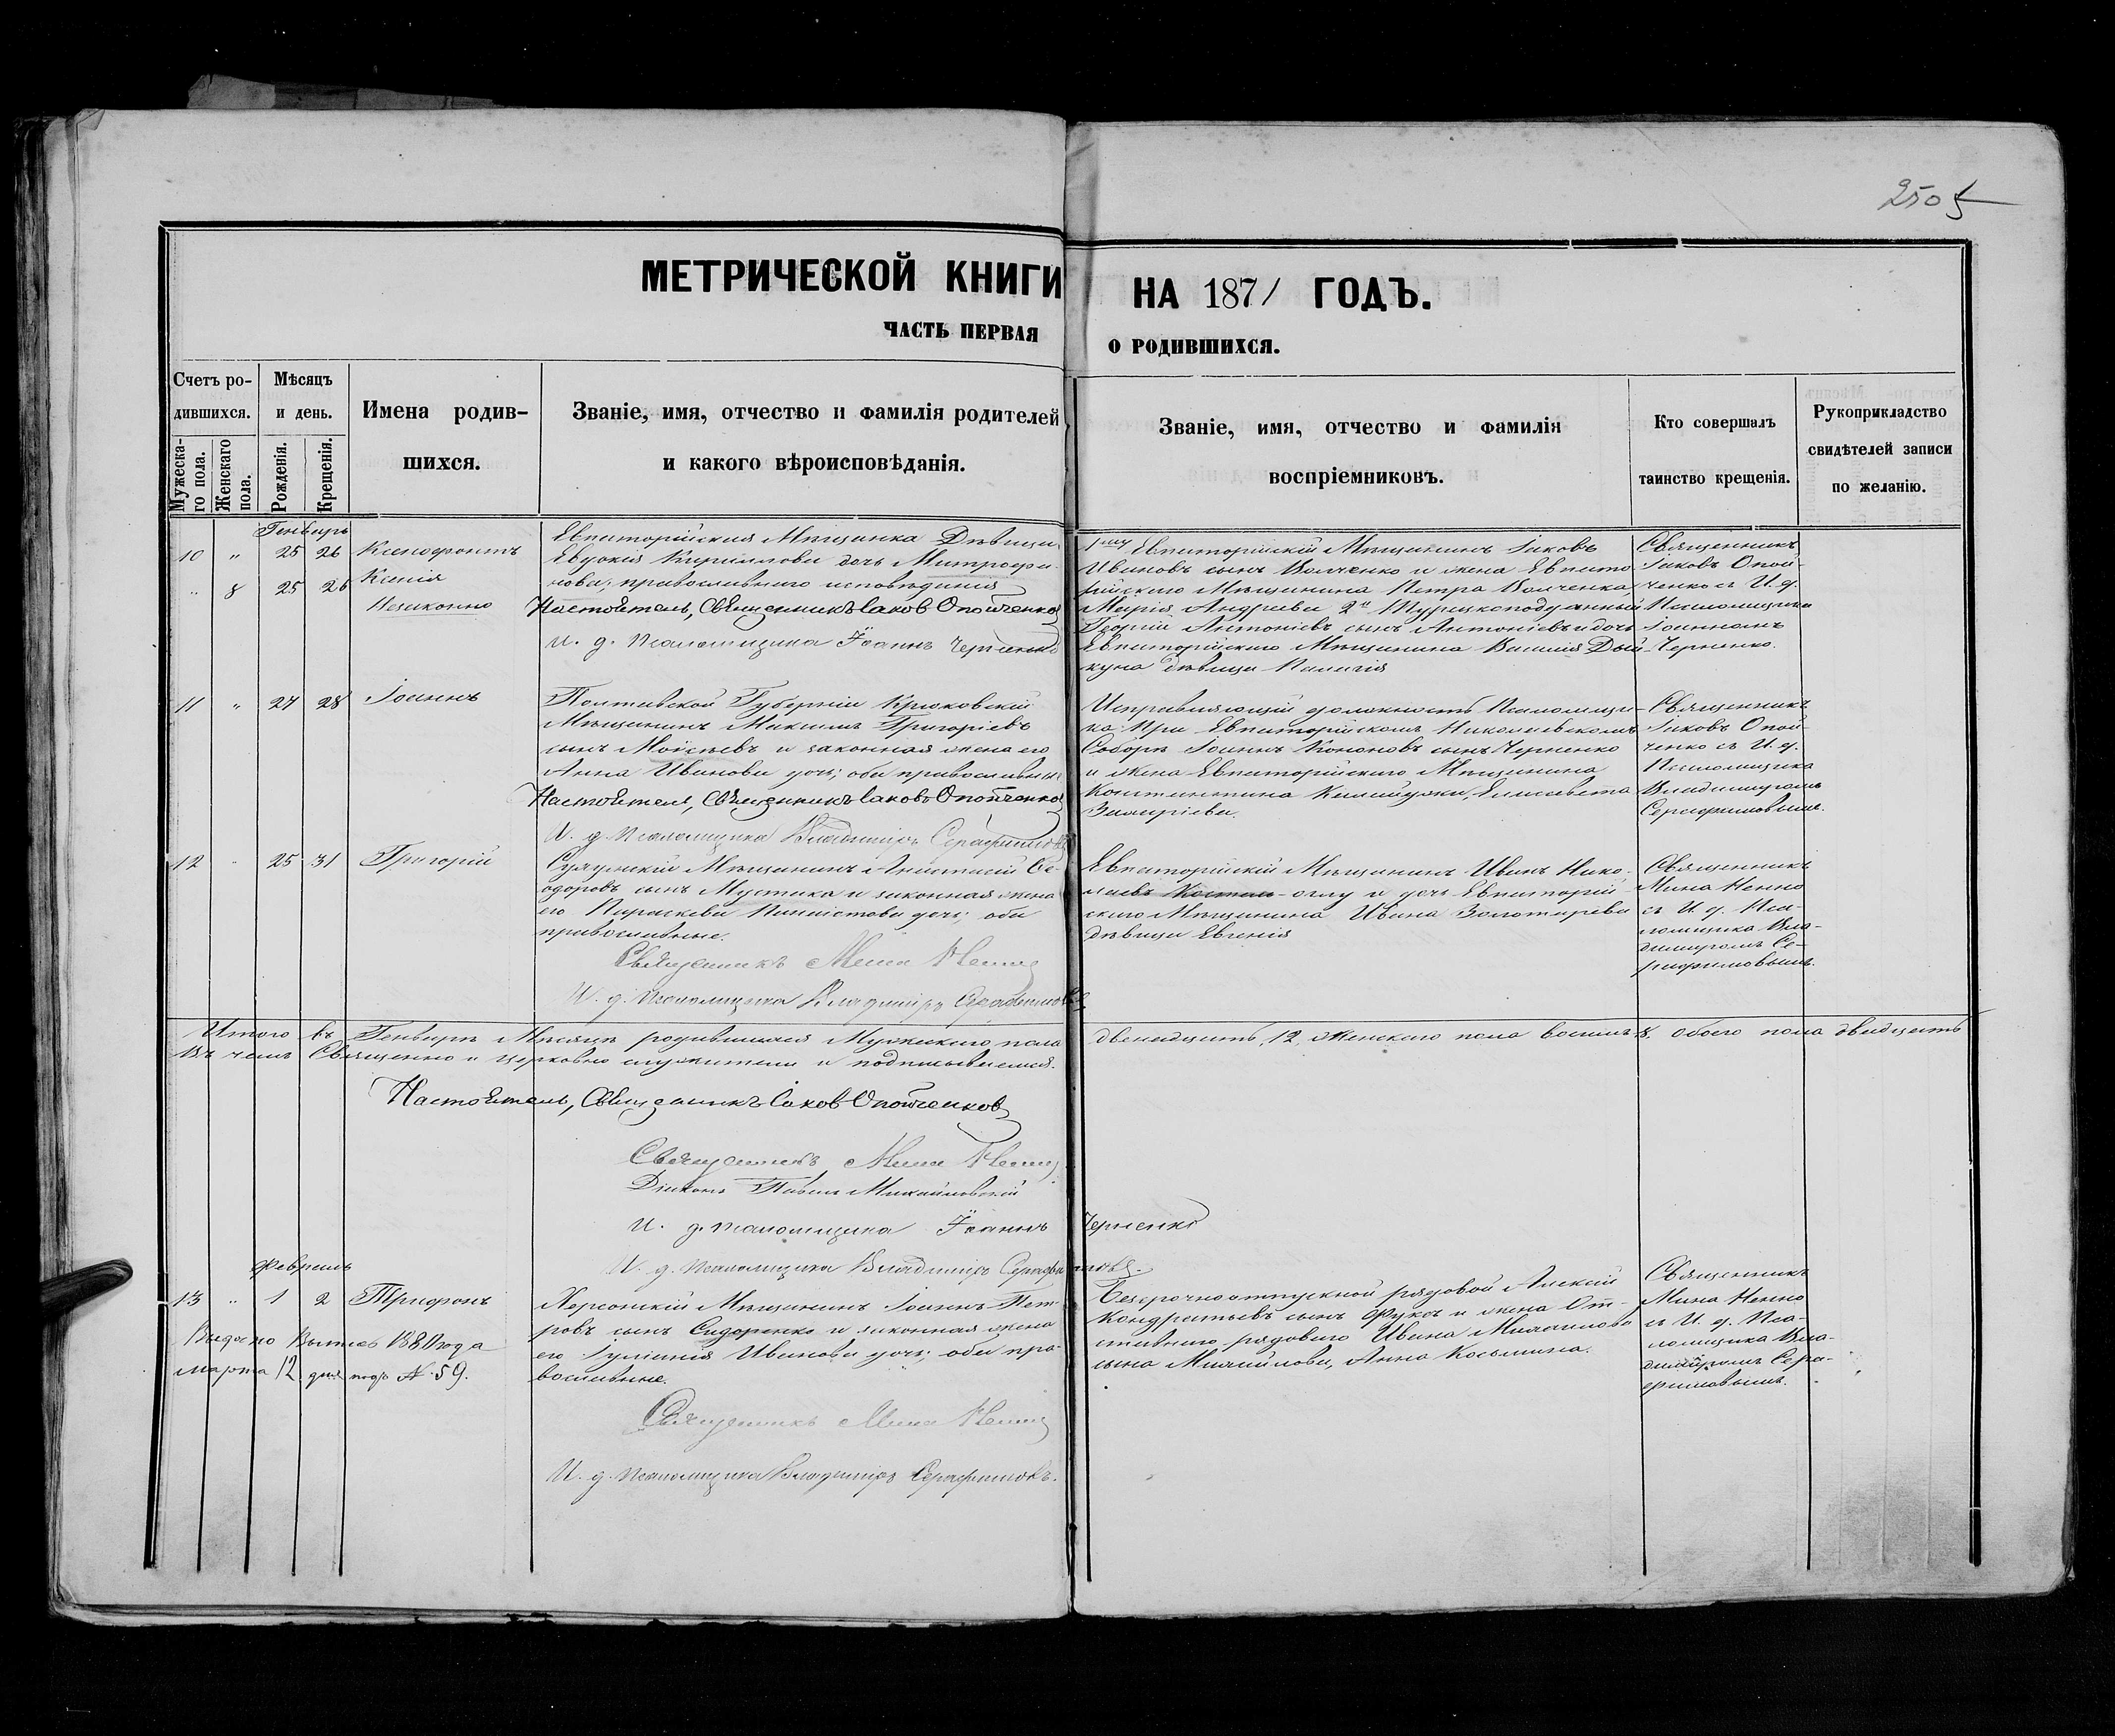 250
МЕТРИЧЕСКОЙ КНИГИ НА 1871 ГОДЪ.
ЧАСТЬ ПЕРВАЯ О РОДИВШИХСЯ.
Счетъ ро-
дившихся.
Мужеска-
го пола.
Женскаго
пола.
Мѣсяцъ
и день.
Рожденія.
Крещенія.
Имена родив-
шихся.
Званіе, имя, отчество и фамилія родителей
и какого вѣроисповѣданія.
Званіе, имя, отчество и фамилія
воспріемниковъ.
Кто совершалъ
таинство крещенія.
Рукоприкладство
свидѣтелей записи
по желанію.
Генварь
10 " 25 26 Ксенофонтъ
" 8 25 26 Ксенія
Незаконно
Евпаторійская Мѣщанка Дѣвица
Евдокія Кириллова дочь Митрофа-
нова; православнаго исповѣданія
Настоятель, Священникъ Іаковъ Опойченковъ
И. д. Псаломщика Іоаннъ Черненко
Евпаторійскій Мѣщанинъ Іаковъ
Ивановъ сынъ Волченко и жена Евпато-
рійскаго Мѣщанина Петра Волченка,
Марія Андреева 2й Турецкоподданный
Георгій Антоніевъ сынъ Антоніевъ и дочь
Евпаторійскаго Мѣщанина Василія Дый-
куна дѣвица Палагія
Священникъ
Іаковъ Опой-
ченко съ И. д.
Псаломщика
Іоанномъ
Черненко.
11 " 27 28 Іоаннъ
Полтавской Губерніи Крюковскій
Мѣщанинъ Максимъ Григоріевъ
сынъ Моисѣевъ и законная жена его
Анна Иванова дочь; оба православные
Настоятель, Священникъ Іаковъ Опойченковъ
И. д. Псаломщика Владиміръ Серафимовъ
Исправляющій должность Псаломщи-
ка при Евпаторійскомъ Николаевскомъ
Соборѣ Іоаннъ Кононовъ сынъ Черненко
и жена Евпаторійскаго Мѣщанина
Константина Елисавета
Священникъ
Іаковъ Опой-
ченко съ И. д.
Псаломщика
Владиміромъ
Серафимовымъ.
12 " 25 31 Григорій
Мѣщанинъ Анастасій Ѳе-
одоровъ сынъ Мустака и законная жена
его Параскева дочь; оба
православные.
Священникъ Мина Ненно
И. д. Псаломщика Владиміръ Серафимовъ
Евпаторійскій Мѣщанинъ Иванъ Нико-
лаевъ оглу и дочь Евпаторій-
скаго Мѣщанина Ивана Золотарева
дѣвица Евгенія
Священникъ
Мина Ненно
съ И. д. Пса-
ломщика Вла-
диміромъ Се-
рафимовымъ.
Итого въ Генварѣ Мѣсяцѣ родившихся Мужескаго пола двенадцать, 12, Женскаго пола восемь, 8, обоего пола двадцать
Въ чемъ Священно и церковно служители и подписываемся.
Настоятель, Священникъ Іаковъ Опойченковъ
Священникъ Мина Ненно
Діаконъ Павелъ Михайловскій
И. д. Псаломщика Іоаннъ Черненко
И. д. Псаломщика Владиміръ Серафимовъ.
Февраль
13 " 1 2 Трифонъ
Выдано 1880 года
марта 12 дня подъ № 59.
Херсонскій Мѣщанинъ Іоаннъ Пет-
ровъ сынъ Сидоренко и законная жена
его Іуліанія Иванова дочь; оба пра-
вославные.
Священникъ Мина Ненно
И. д. Псаломщика Владиміръ Серафимовъ.
Безсрочноотпускной рядовой Алексій
Кондратьевъ сынъ Фуксъ и жена От-
ставнаго рядоваго Ивана Михайлова
сына Михайлова, Анна Косьмина.
Священникъ
Мина Ненно
съ И. д. Пса-
ломщика Вла-
диміромъ Сера-
фимовымъ.